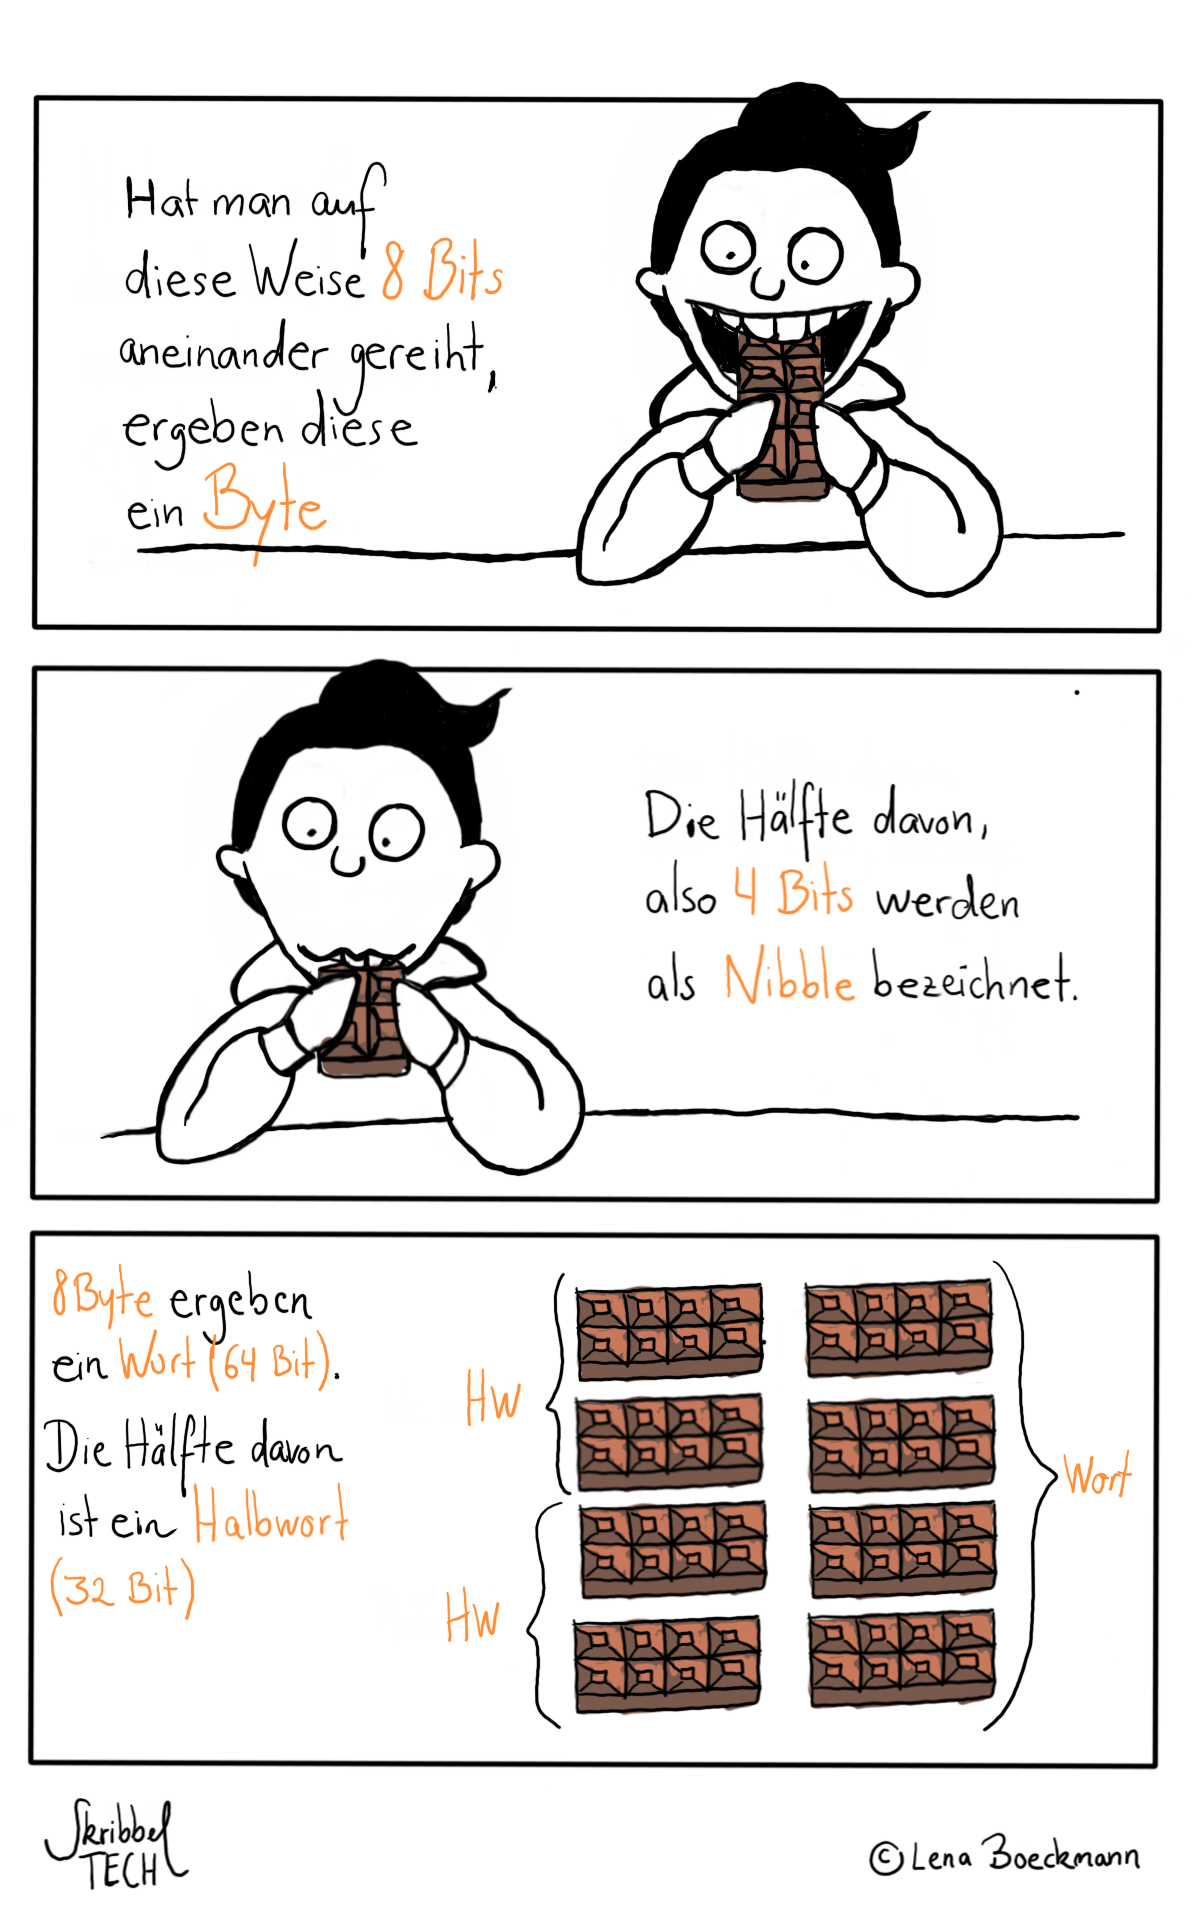 Hat man auf
diese Weise 8 Bits
aneinander gereiht,
ergeben diese
ein Byte
Die Hälfte davon,
also 4 Bits werden
als Nibble bezeichnet.
8Byte ergeben
ein Wort (64 Bit).
Die Hälfte davon
ist ein Halbwort
(32 Bit)
HW
HW
Wort
Skribbel
TECH
© Lena Boeckmann